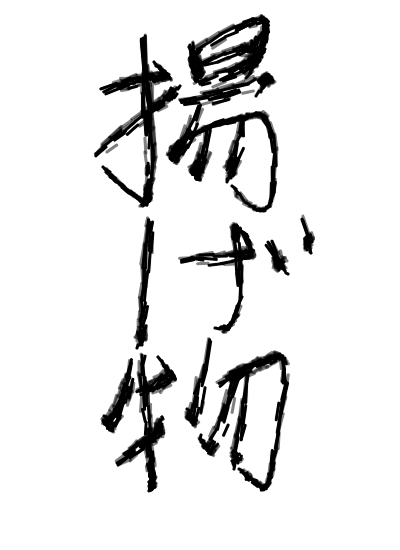 揚げ物